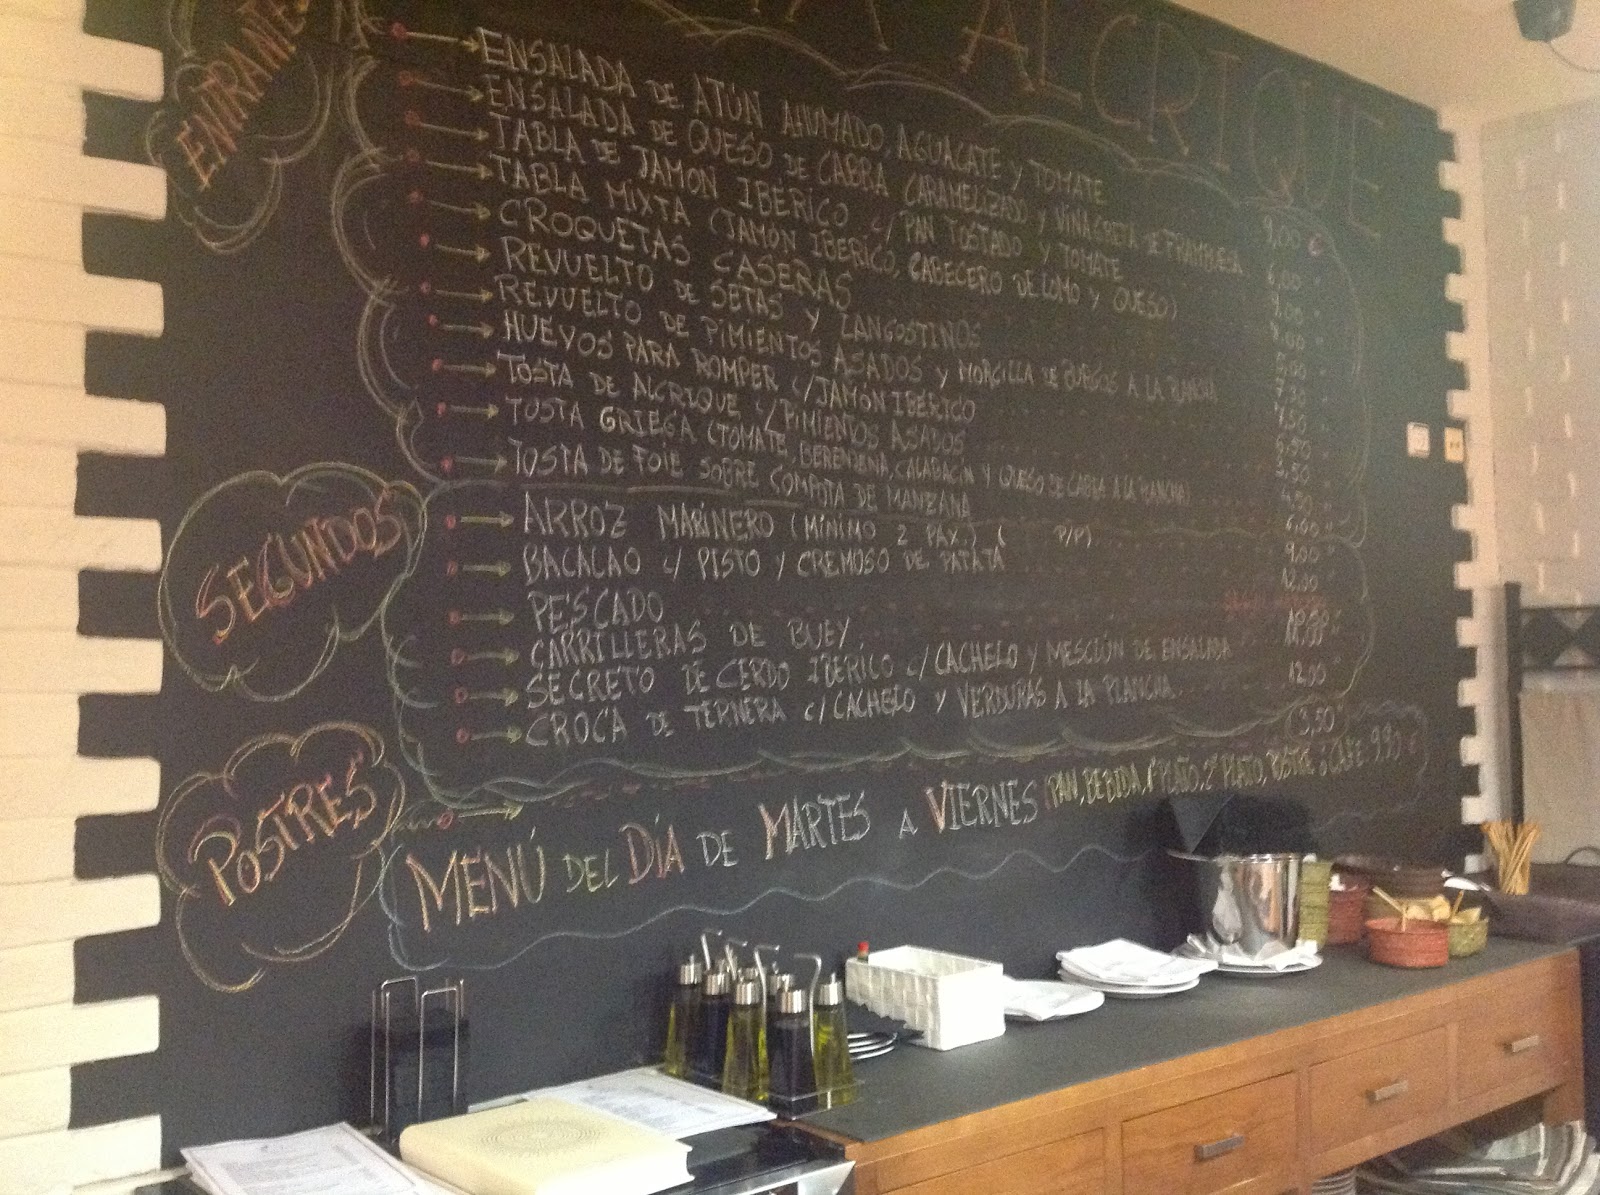 ALCRIQUE
ENTRANTES
ENSALADA DE ATÚN AHUMADO, AGUACATE Y TOMATE 9,00 €
ENSALADA DE QUESO DE CABRA CARAMELIZADO Y VINAGRETA DE FRAMBUESA
TABLA DE JAMÓN IBÉRICO C/ PAN TOSTADO Y TOMATE
TABLA MIXTA (JAMÓN IBÉRICO, CABECERO DE LOMO Y QUESO)
CROQUETAS CASERAS
REVUELTO DE SETAS Y LANGOSTINOS
REVUELTO DE PIMIENTOS ASADOS Y MORCILLA DE BURGOS A LA PLANCHA
HUEVOS PARA ROMPER C/ JAMÓN IBÉRICO
TOSTA DE ALCRIQUE C/ PIMIENTOS ASADOS
TOSTA GRIEGA (TOMATE, BERENJENA, CALABACÍN Y QUESO DE CABRA A LA PLANCHA)
TOSTA DE FOIE SOBRE COMPOTA DE MANZANA
SEGUNDOS
ARROZ MARINERO (MÍNIMO 2 PAX.) ( P/P)
BACALAO C/ PISTO Y CREMOSO DE PATATA
PESCADO
CARRILLERAS DE BUEY
SECRETO DE CERDO IBERICO C/ CACHELO Y MESCLÚN DE ENSALADA
CROCA DE TERNERA C/ CACHELO Y VERDURAS A LA PLANCHA 12,00
POSTRES 3,50
MENÚ DEL DÍA DE MARTES A VIERNES (PAN, BEBIDA, 1º PLATO, 2º PLATO, POSTRE ó CAFE: 9,90 €